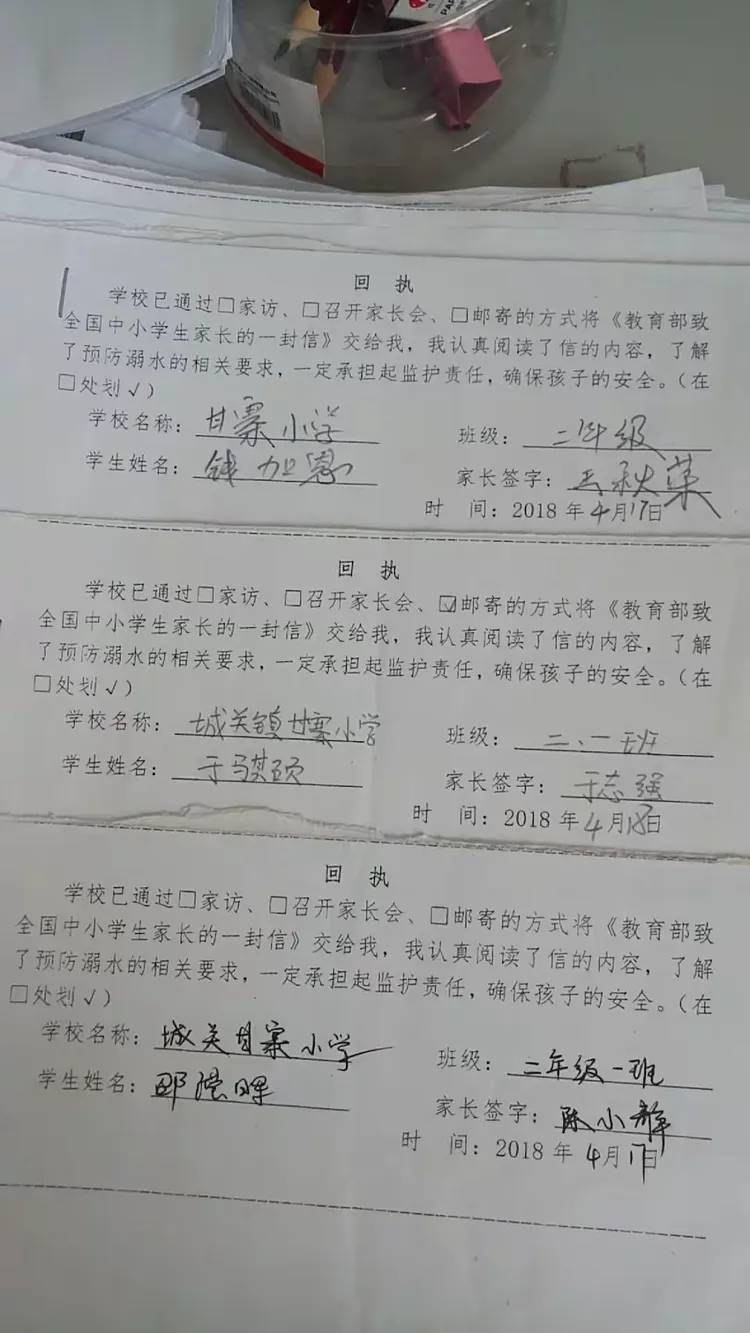 回 执
学校已通过□家访、□召开家长会、□邮寄的方式将《教育部致
全国中小学生家长的一封信》交给我，我认真阅读了信的内容，了解
了预防溺水的相关要求，一定承担起监护责任，确保孩子的安全。（在
□处划√）
学校名称：甘寨小学 班级：二年级
学生姓名：钱加恩 家长签字：秋荣
时 间：2018年4月17日
回 执
学校已通过□家访、□召开家长会、☑邮寄的方式将《教育部致
全国中小学生家长的一封信》交给我，我认真阅读了信的内容，了解
了预防溺水的相关要求，一定承担起监护责任，确保孩子的安全。（在
□处划√）
学校名称：城关镇甘寨小学 班级：二、一班
学生姓名：于骐硕 家长签字：于志强
时 间：2018年4月18日
回 执
学校已通过□家访、□召开家长会、□邮寄的方式将《教育部致
全国中小学生家长的一封信》交给我，我认真阅读了信的内容，了解
了预防溺水的相关要求，一定承担起监护责任，确保孩子的安全。（在
□处划√）
学校名称：城关甘寨小学 班级：二年级一班
学生姓名： 家长签字：陈小静
时 间：2018年4月17日